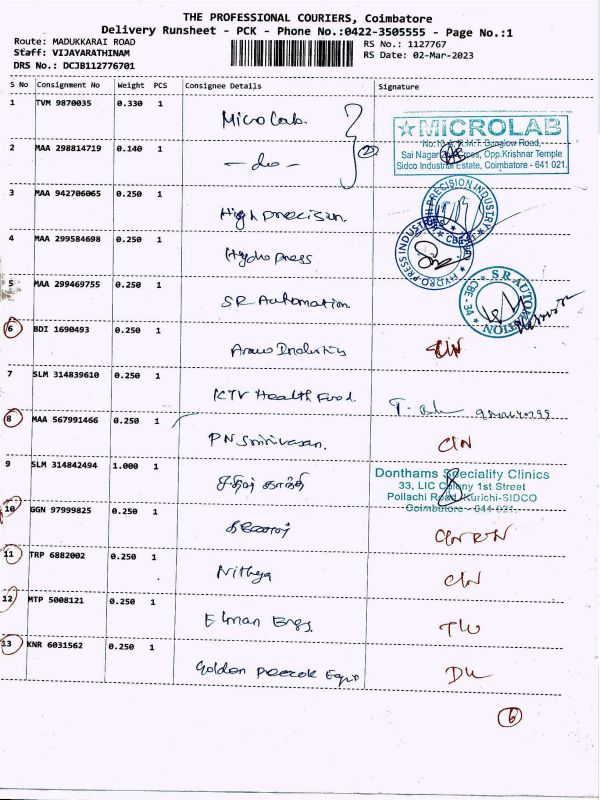 THE PROFESSIONAL COURIERS, Coimbatore
Delivery Runsheet - PCK - Phone No.:0422-3505555 - Page No.:1
Route: MADUKKARAI ROAD
RS No.: 1127767
Staff: VIJAYARATHINAM
RS Date: 02-Mar-2023
DRS No.: DCJB112776701
S No Consignment No Weight PCS Consignee Details Signature
1 TVM 9870035 0.330 1
Micro Lab.
☆MICROLAB
Sai Nagar Opp.Krishnar Temple
Sidco Industrial Estate, Coimbatore - 641 021.
2 MAA 298814719 0.140 1
- do -
3 MAA 942706065 0.250 1
High precision.
HIGH PRECISION INDUSTRY
4 MAA 299584698 0.250 1
Hydro press
HYDRO PRESS INDUSTRIES
5 MAA 299469755 0.250 1
SR Automation
S R AUTOMATION
CBE - 34
6 BDI 1690493 0.250 1
7 SLM 314839610 0.250 1
KTV Health Food
8 MAA 567991466 0.250 1
PN Srinivasan.
C/N
9 SLM 314842494 1.000 1
Donthams Speciality Clinics
33, LIC Colony 1st Street
Pollachi Road, Kurichi-SIDCO
Coimbatore - 641 021.
10 GGN 97999825 0.250 1
11 TRP 6882002 0.250 1
Nithya
C/N
12 MTP 5008121 0.250 1
13 KNR 6031562 0.250 1
6